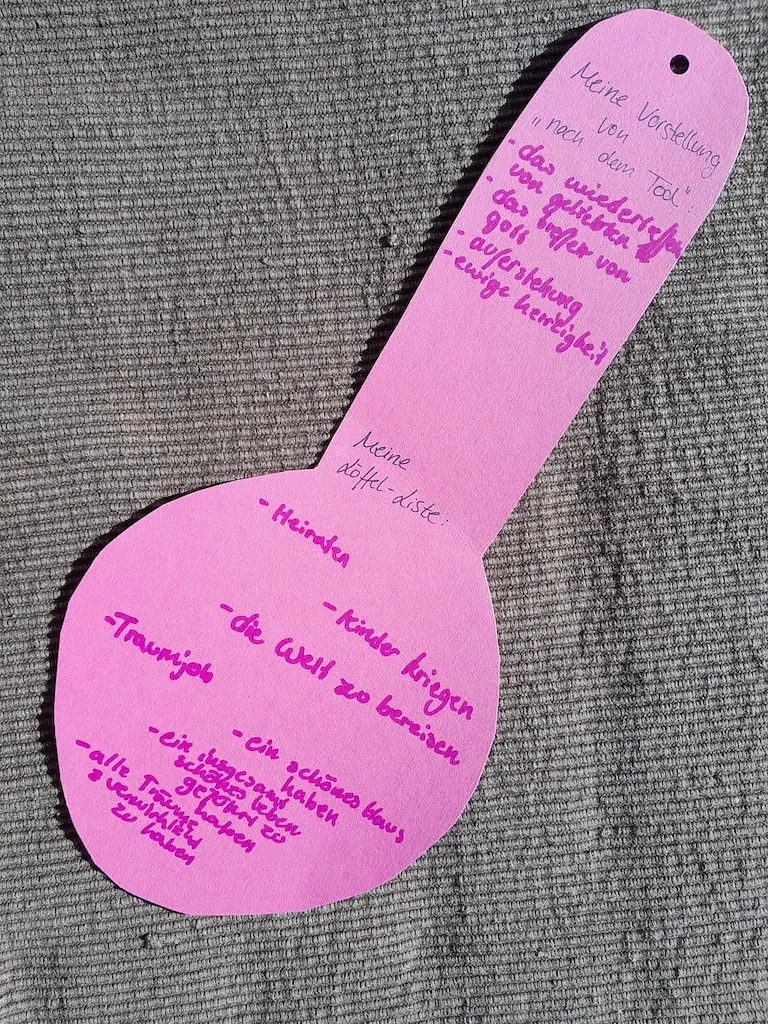 Meine Vorstellung
von
"nach dem Tod":
- das wiedertreffen
von geliebten
- das treffen von
gott
- auferstehung
- ewige herrligkeit
Meine
Löffel-Liste:
- Heiraten
- Kinder kriegen
- die Welt zu bereisen
- Traumjob
- ein schönes Haus
haben
- ein insgesamt
schönes leben
geführt zu
haben
- alle Träume
verwirklicht
zu haben